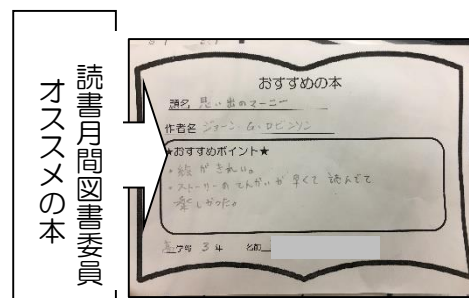 読書月間図書委員
オススメの本
おすすめの本
題名 思い出のマーニー
作者名 ジョーン・G・ロビンソン
★おすすめポイント★
・絵がきれい。
・ストーリーのてんかいが早くて読んでて
楽しかった。
3年 名前